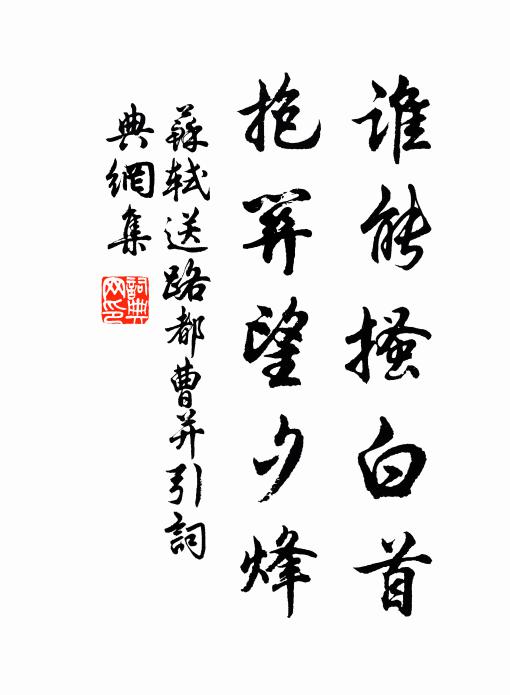 谁能搔白首
抱關望夕烽
蘇軾送路都曹并引詞
典網集
詞典
网印